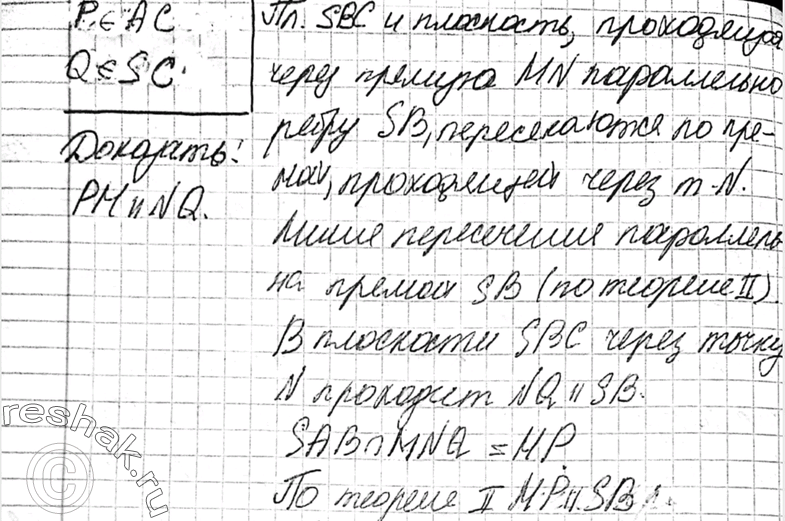 P ∈ AC
Q ∈ SC.
Доказать:
PM ∥ NQ.
Пл. SBC и плоскость, проходящая
через прямую MN параллельно
ребру SB, пересекаются по пря-
мой, проходящей через т. N.
Линия пересечения параллель-
на прямой SB (по теореме II).
В плоскости SBC через точку
N проходит NQ ∥ SB.
SAB ∩ MNQ = MP.
По теореме II MP ∥ SB
reshak.ru
©